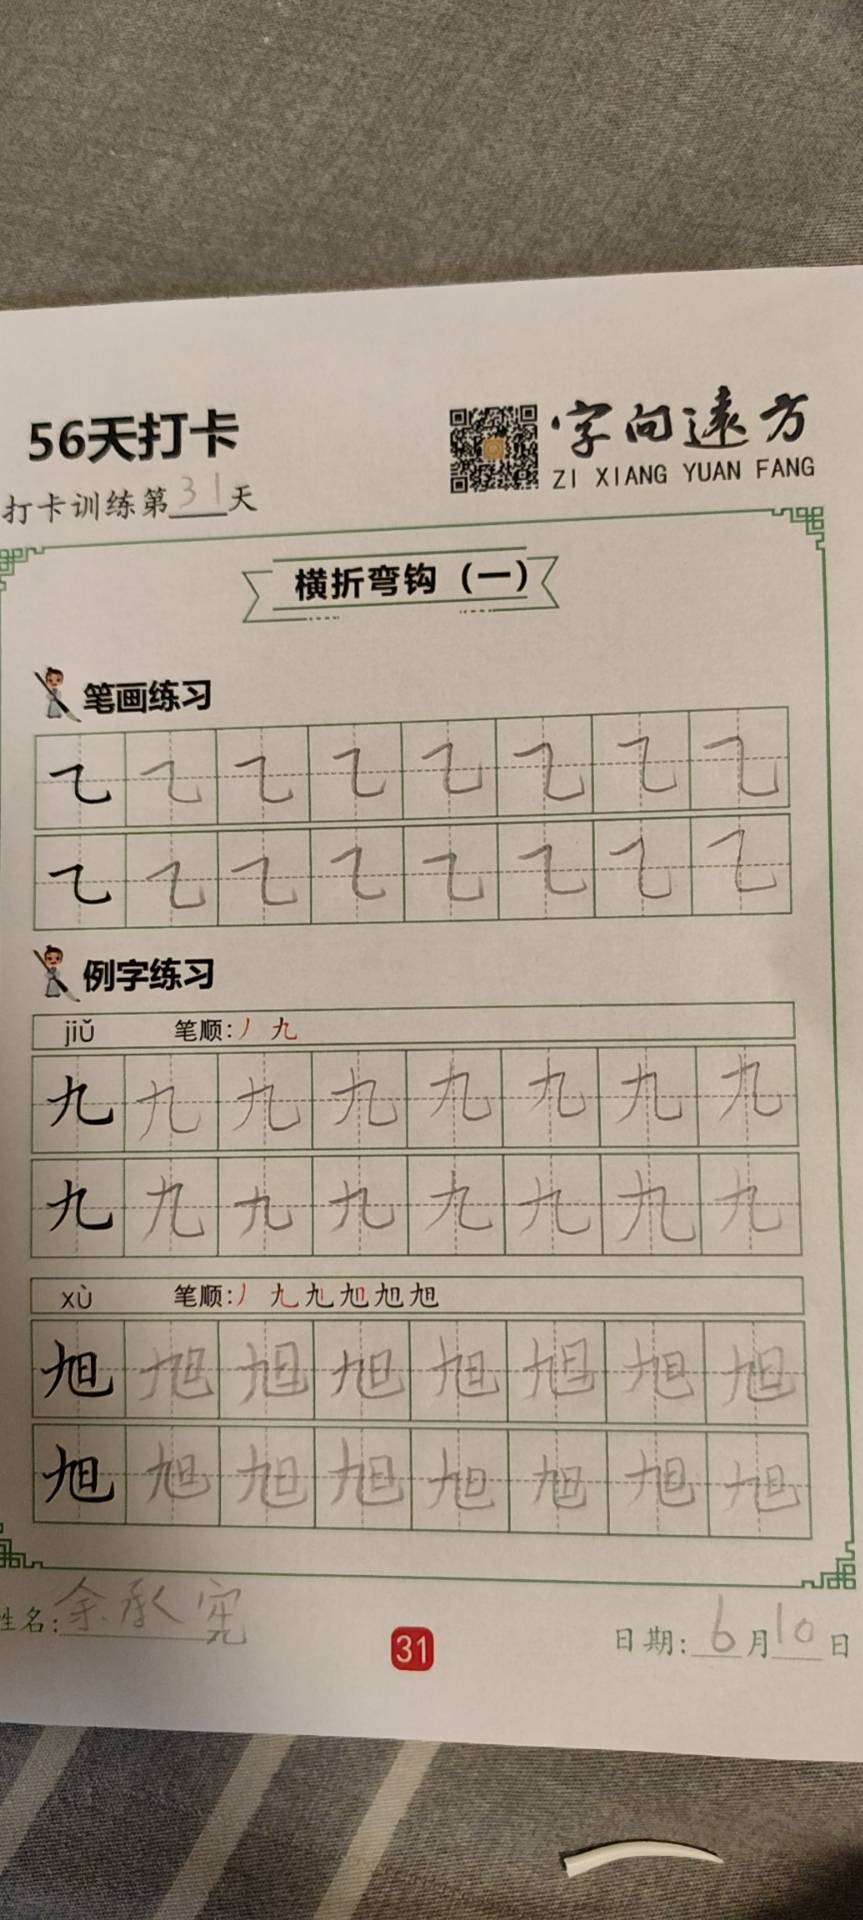 56天打卡
字向远方
ZI XIANG YUAN FANG
打卡训练第31天
横折弯钩（一）
笔画练习
㇈㇈㇈㇈㇈㇈㇈㇈
㇈㇈㇈㇈㇈㇈㇈㇈
例字练习
jiǔ 笔顺:丿九
九九九九九九九九
九九九九九九九九
xù 笔顺:丿九旭旭旭旭
旭旭旭旭旭旭旭旭
旭旭旭旭旭旭旭旭
姓名:余承宪
31
日期:6月10日